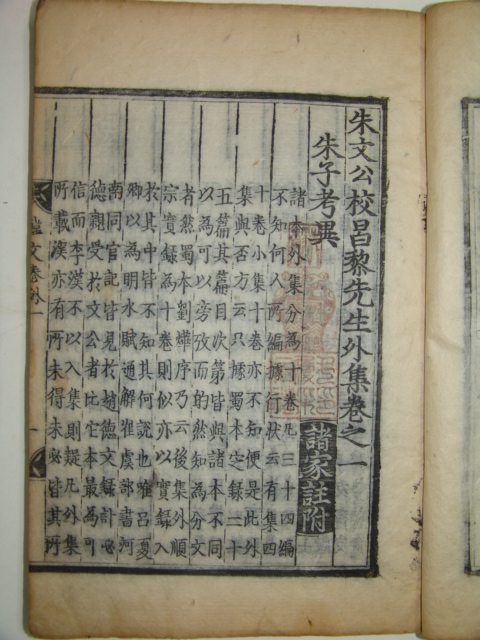 朱文公校昌黎先生外集卷之一
朱子考異
諸家註附
諸本外集分為十卷凡三十四編
不知何人所編據行狀云有集四
十卷小集十卷亦不知便是此外
集與否方云只據蜀本定錄二十
五篇其篇目次第皆與諸本不同
以為可以旁攷而的然知為分文
者然蜀本劉燁序乃云後集外順
宗實錄為十卷則似亦以實錄入
於其中皆不知其何說也唯呂夏
卿以為明水賦通解崔虞部書河
南同官記皆見於趙德文錄計必
德親受於文公者比它本最為可
信而李漢不以入集則疑凡外集
所載漢亦有所未得未必皆其所
文卷外一
一